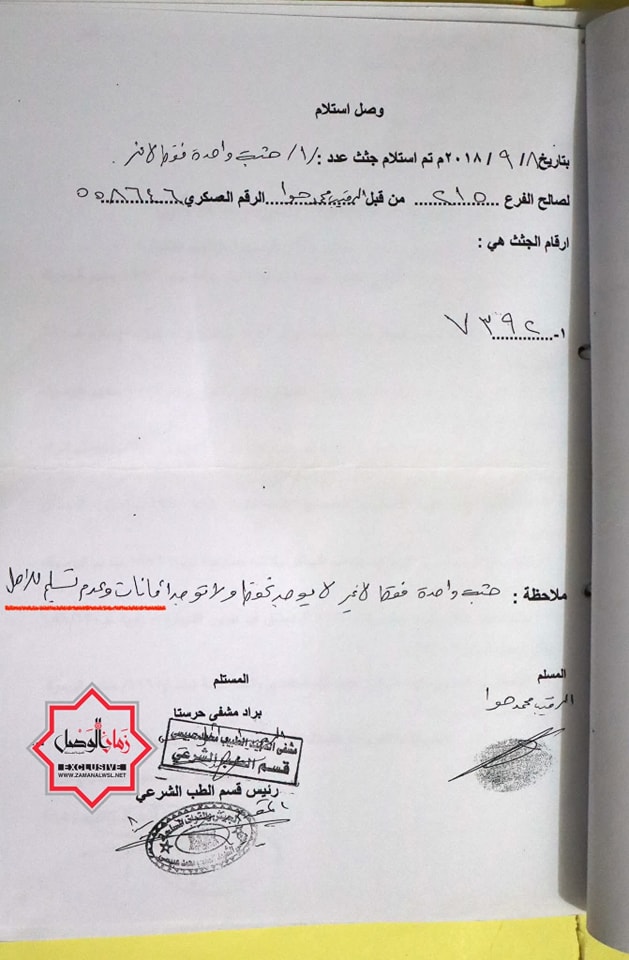 وصل استلام
بتاريخ ٨ / ٩ / ٢٠١٨م تم استلام جثث عدد : /١/ جثة واحدة فقط لا غير .
لصالح الفرع ....٢١٥.... من قبل الرقيب محمد حوا الرقم العسكري ٠٥٥٨٦٤٦
ارقام الجثث هي :
١- ٧٣٩٢
ملاحظة : جثة واحدة فقط لا غير لا يوجد تحفظ ولا توجد أمانات وعدم تسليم للأهل
المسلم
الرقيب محمد حوا
المستلم
براد مشفى حرستا
مشفى الشهيد الطبيب
قسم الطب الشرعي
رئيس قسم الطب الشرعي
زمان الوصل
EXCLUSIVE
WWW.ZAMANALWSL.NET